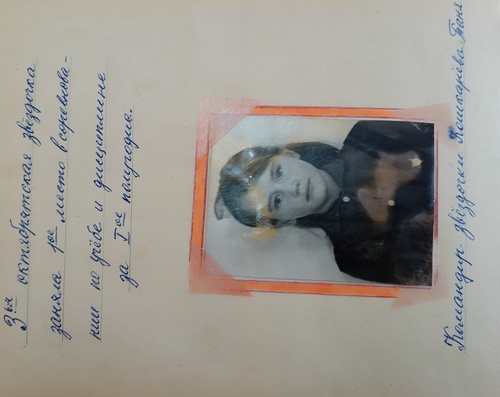 3ья октябрятская звёздочка
заняла 1ое место в соревнова-
нии по учёбе и дисциплине
за Iое полугодие.
Командир звёздочки Пискарёва Таня